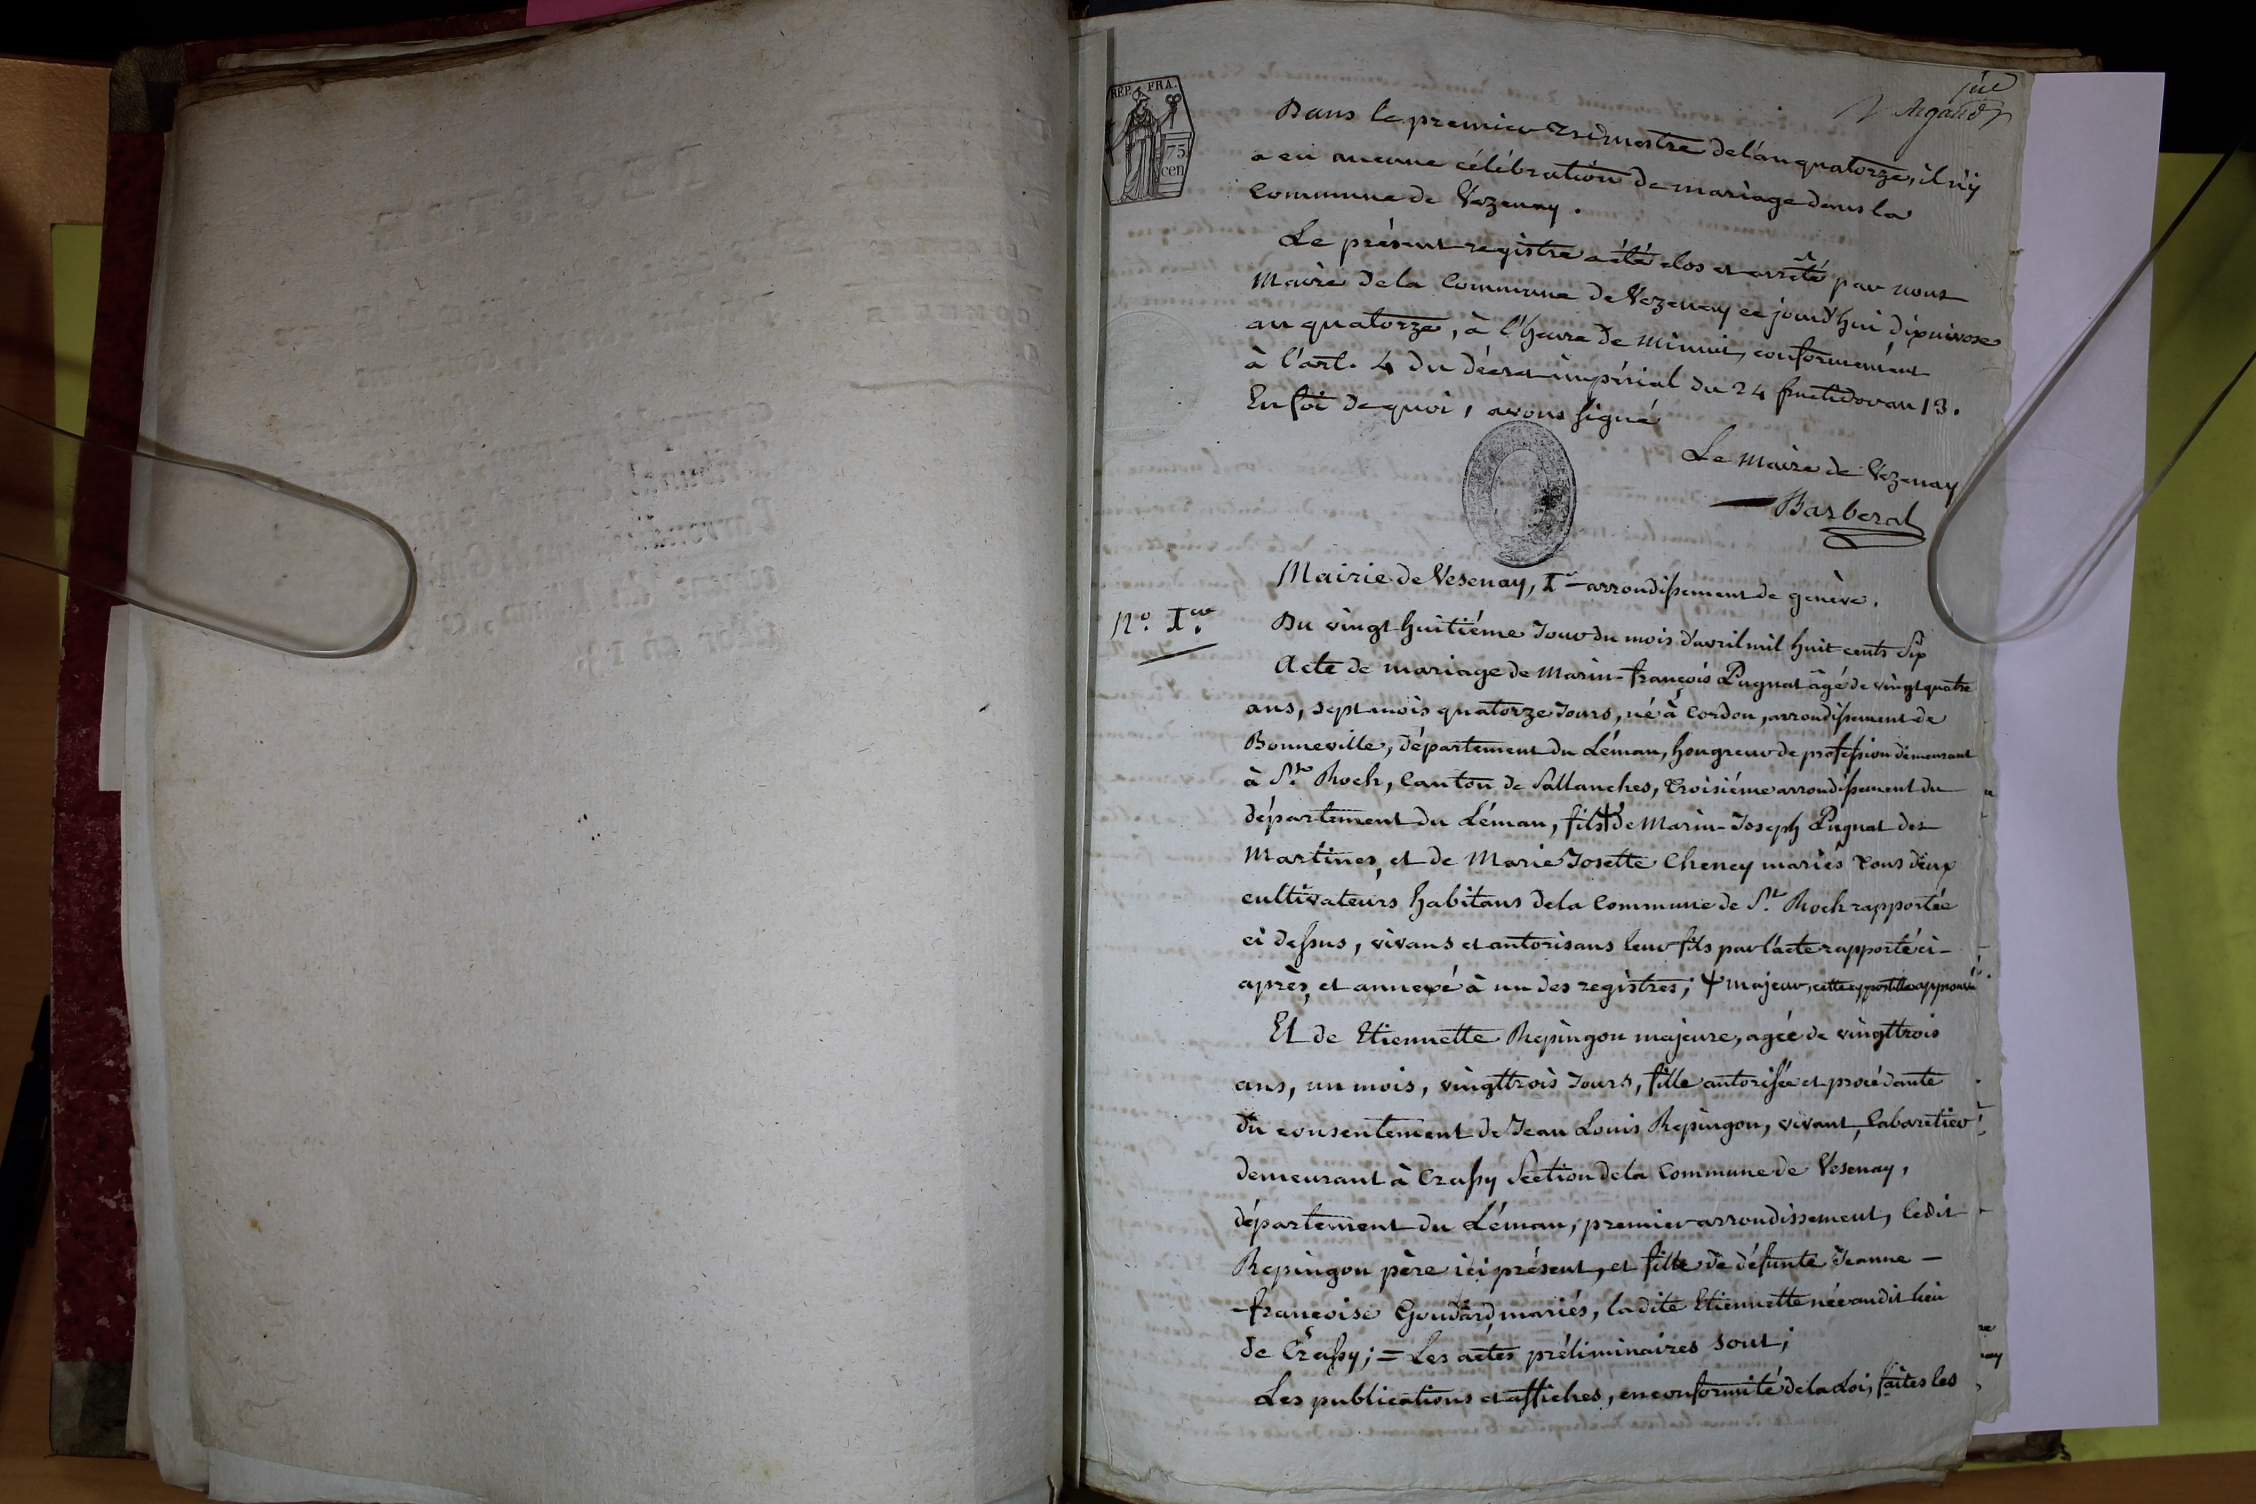 REP. FRA.
75
cen
Dans le premier Trimestre de l'an quatorze, il n'y
a eu aucune célébration de mariage dans la
Commune de Vezenay.
Le présent registre a été clos et arrêté par nous
Maire de la Commune de Vezenay ce jourd'hui dix nivose
an quatorze, à l'heure de minuit, conformément
à l'art. 4 du décret impérial du 24 fructidor an 13.
En foi de quoi, avons signé
Le Maire de Vezenay
Barberat
Mairie de Vesenay, Ier arrondissement de genève.
No. Ier.
Du vingt huitiéme Jour du mois d'avril mil huit cents Six
Acte de mariage de Marin-françois Pugnat âgé de vingt quatre
ans, sept mois quatorze Jours, né à Cordon, arrondissement de
Bonneville, département du Léman, hongreur de profession demeurant
à St. Roch, Canton de Sallanches, troisiéme arrondissement du
département du Léman, fils de Marin-Joseph Pugnat des
Martines, et de Marie Josette Cheney mariés tous deux
cultivateurs habitans de la Commune de St. Roch rapportée
ci dessus, vivans et autorisans leur fils par l'acte rapporté ci-
après, et annexé à un des registres; majeur, cette appostille approuvée
Et de Etiennette Repingon majeure, agée de vingttrois
ans, un mois, vingttrois Jours, fille autorisée et procédante
du consentement de Jean Louis Repingon, vivant, Cabaretier
demeurant à Crassy Section de la Commune de Vesenay,
département du Léman, premier arrondissement, ledit
Repingon père ici présent, et fille de défunte Jeanne-
françoise Goudard, mariés, ladite Etiennette née audit lieu
de Crassy; = Les actes préliminaires sont;
Les publications et affiches, en conformité de la Loi, faites les